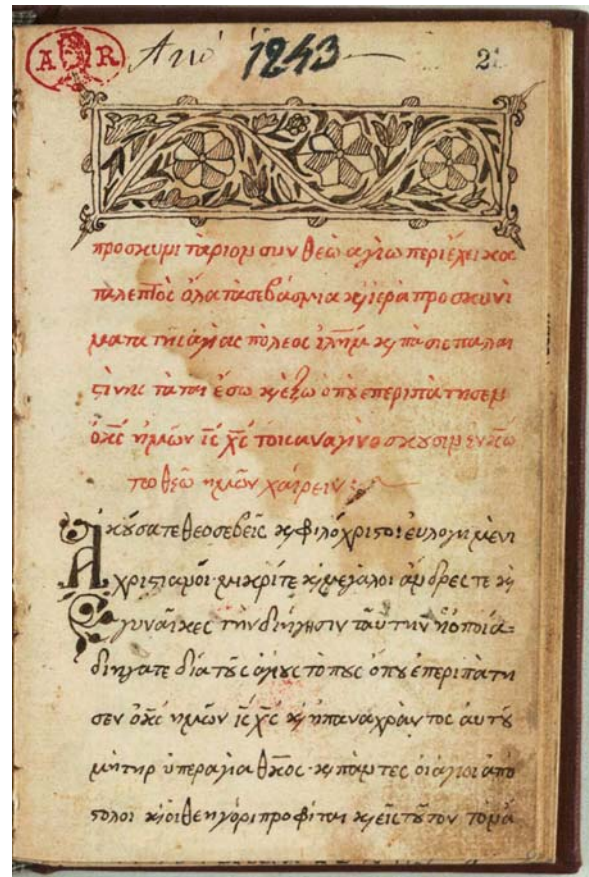 A R
1243
2
προσκυμιτάριομ συν θεῶ αγίω περιέχει κα
τα λεπτὸς ὅλα τὰ σεβάσμια κ ιερὰ προσκυνί
ματα τῆς ἁγίας πόλεος ἱλ̅η̅μ κ πάσις παλαι
ςίνης τά ται ἔσω κ ἔξω ὁπȣ επεριπάτησεμ
ὁ κ̅ς ημῶν ι̅ς χ̅ς τοις αναγινοσκȣσιμ ἐν κ̅ω
τῶ θεῶ ημῶν χαίρειν
Ακȣσατε θεοσεβεῖς κ φιλόχριςοι ευλογημένι
χριςιαμοί· μικρίτε κ μεγάλοι ἄμδρες τε κ
γυναῖκες τὴν διήγησιν ταύτην ἡ ὁποία
διηγᾶτε διὰ τȣς ἁγίȣς τόπȣς ὁπȣ επεριπάτη
σεν ὁ κ̅ς ημῶν ι̅ς χ̅ς κ ἡ παναχραντος αυτȣ
μήτηρ ὑπεραγία θ̅κ̅ος· κ πάμτες οι άγιοι από
ςολοι κ οι θεηγόρι προφίται κ εις τȣτον τὸμ